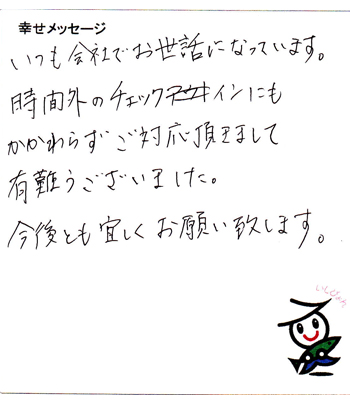 幸せメッセージ
いつも会社でお世話になっています。
時間外のチェックインにも
かかわらずご対応頂きまして
有難うございました。
今後とも宜しくお願い致します。